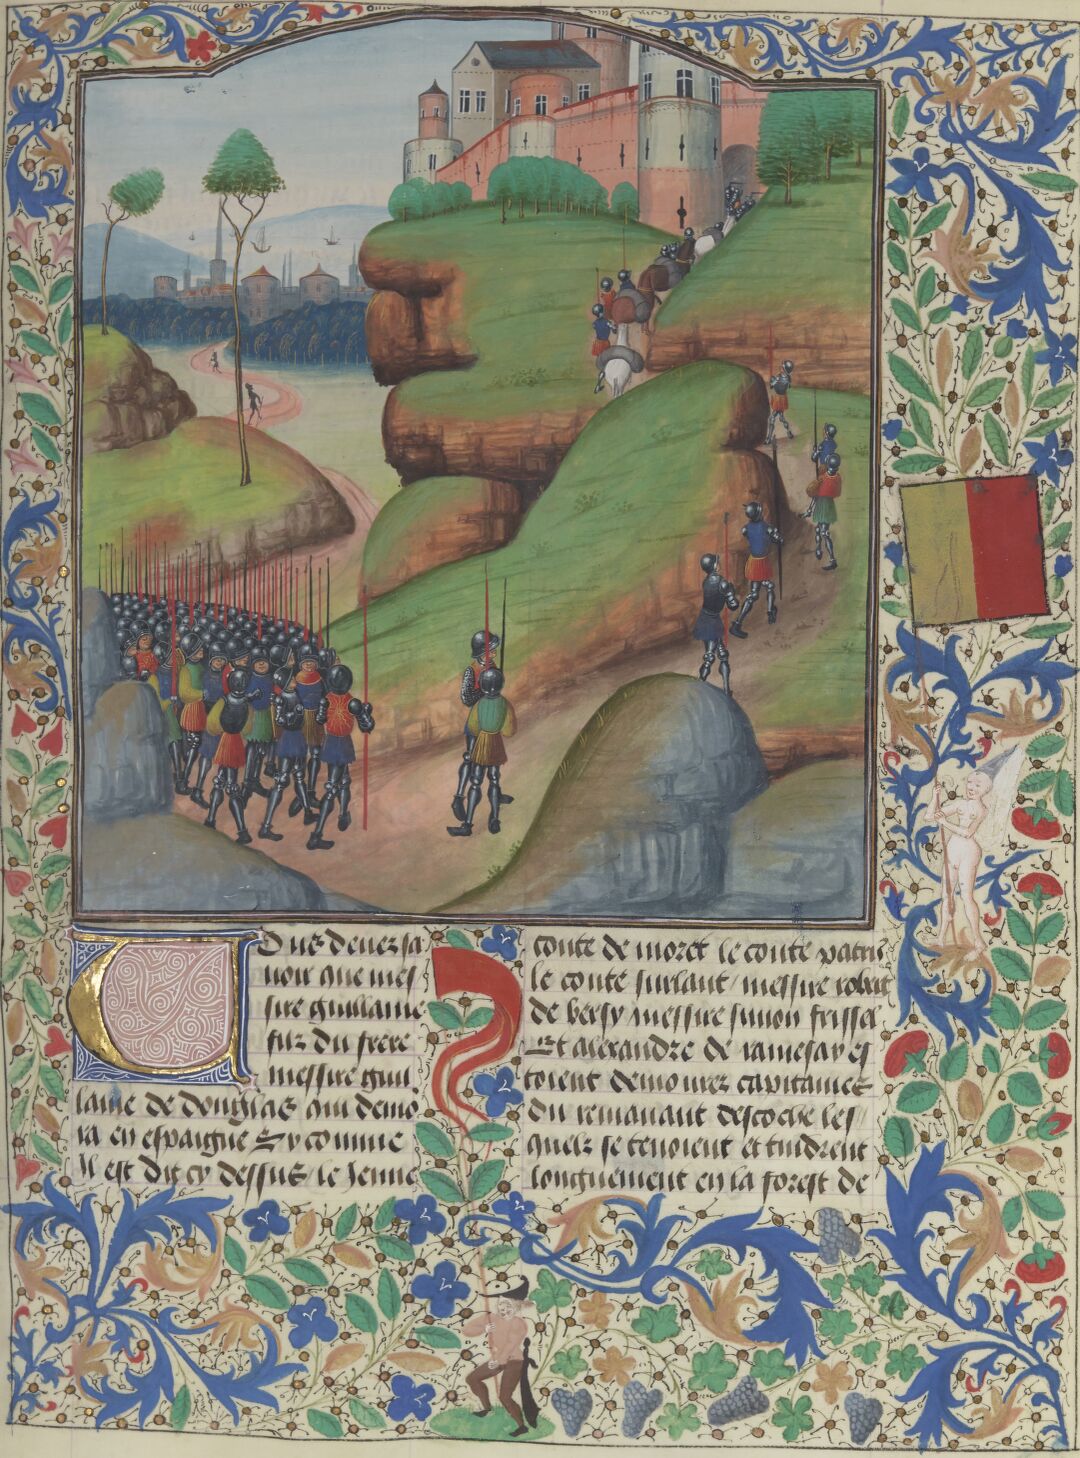 Vous deuez sa
uoir que mes
sire guillaume
filz du frere
messire guil
laume de douglas qui demo
ra en espaigne Sy comme
Il est dit cy dessus / le Jenne
conte de moret le conte patris
le conte surlant / messire robert
de versy messire simon frissel
Et alexandre de ramesay es
toient demourez capitaines
du remanant descoche les
quelz se tenoient et tindrent
longuement en la forest de